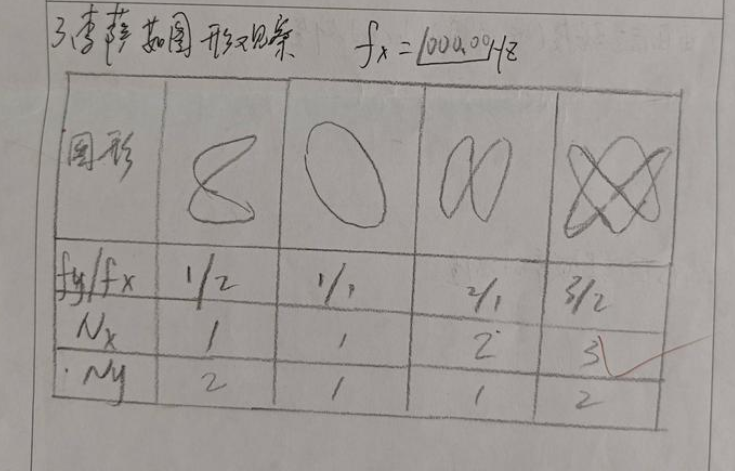 3.李萨茹图形观察 fx=1000.00Hz
图形
fy/fx 1/2 1/1 2/1 3/2
Nx 1 1 2 3
Ny 2 1 1 2